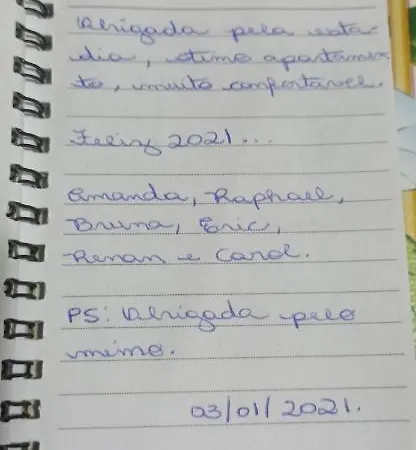 Obrigada pela esta-
dia, otimo apartamen
to, muito confortável.
Feliz 2021...
Amanda, Raphael,
Bruna, Eric,
Renan e Carol.
PS: Obrigada pelo
mimo.
03/01/2021.